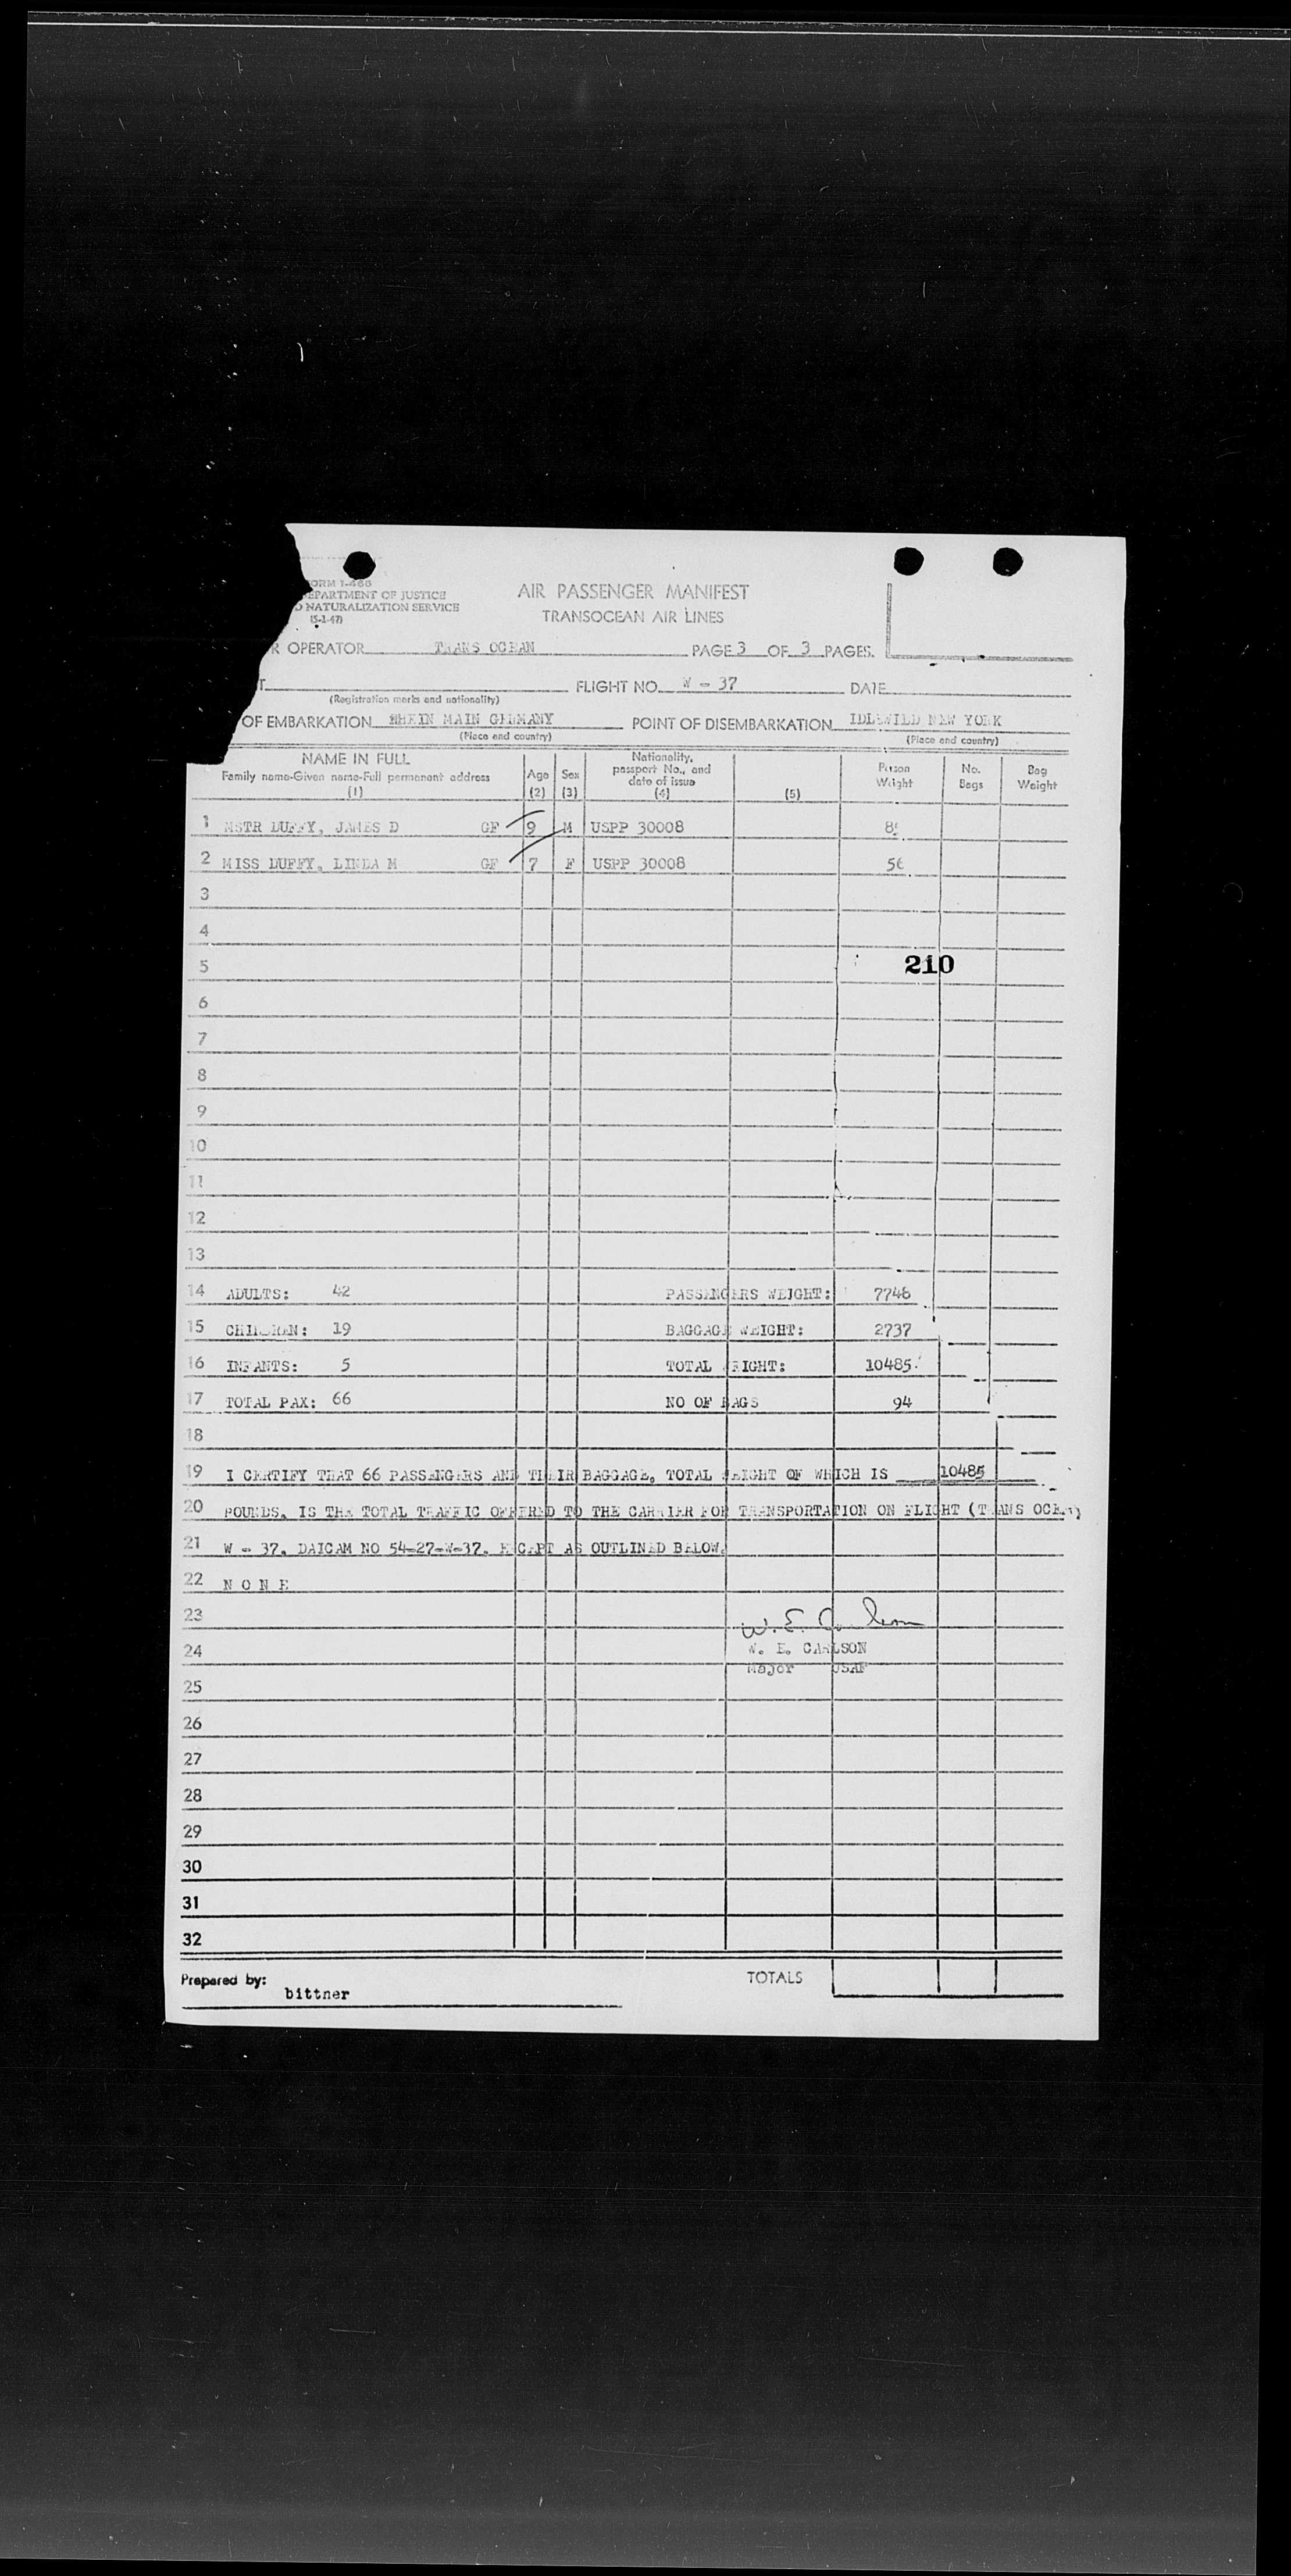 FORM I-466
DEPARTMENT OF JUSTICE
NATURALIZATION SERVICE
(5-1-47)
AIR PASSENGER MANIFEST
TRANSOCEAN AIR LINES
R OPERATOR TRANS OCEAN PAGE 3 OF 3 PAGES.
T FLIGHT NO. W - 37 DATE
(Registration marks and nationality)
OF EMBARKATION RHEIN MAIN GERMANY POINT OF DISEMBARKATION IDLEWILD NEW YORK
(Place and country) (Place and country)
NAME IN FULL
Family name-Given name-Full permanent address
(1)
Age
(2)
Sex
(3)
Nationality,
passport No., and
date of issue
(4)
(5)
Person
Weight
No.
Bags
Bag
Weight
1 MSTR DUFFY, JAMES D GF 9 M USPP 30008
2 MISS DUFFY, LINDA M GF 7 F USPP 30008
3
4
5 210
6
7
8
9
10
11
12
13
14 ADULTS: 42 PASSENGERS WEIGHT:
15 CHILDREN: 19 BAGGAGE WEIGHT: 2737
16 INFANTS: 5 TOTAL WEIGHT: 10485
17 TOTAL PAX: 66 NO OF BAGS 94
18
19 I CERTIFY THAT 66 PASSENGERS AND THEIR BAGGAGE, TOTAL WEIGHT OF WHICH IS 10485
20 POUNDS, IS THE TOTAL TRAFFIC OFFERED TO THE CARRIER FOR TRANSPORTATION ON FLIGHT (TRANS OCEAN)
21 W - 37, DAICAM NO 54-27-W-37. EXCEPT AS OUTLINED BELOW.
22 N O N E
23 W. E. Carlson
24 W. E. CARLSON
Major USAF
25
26
27
28
29
30
31
32
Prepared by: bittner TOTALS